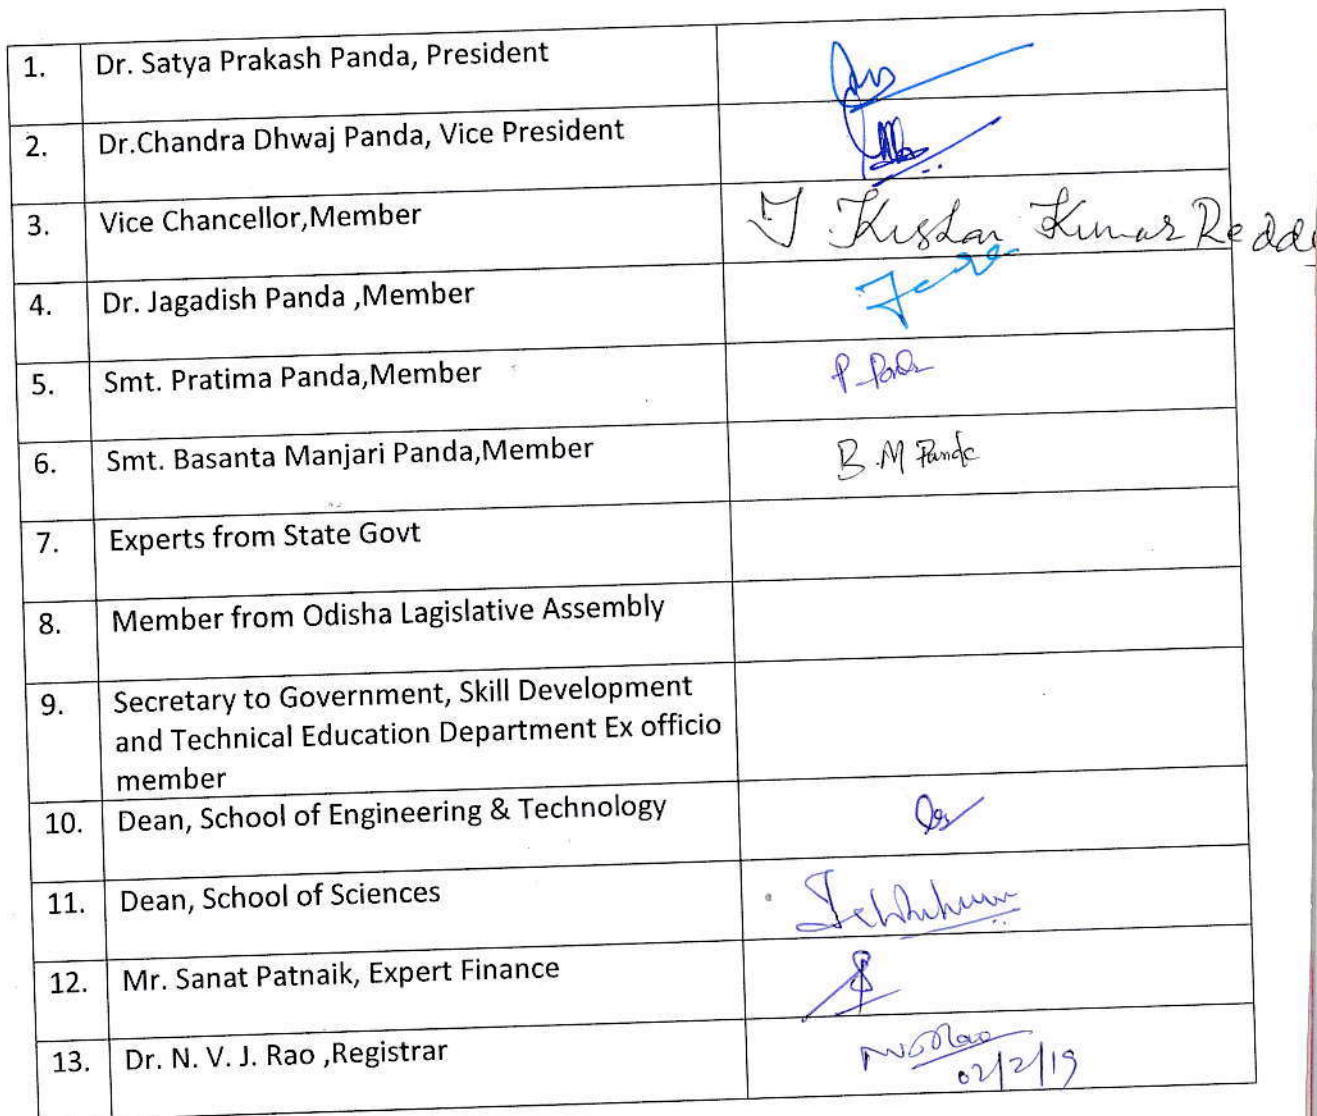 1. Dr. Satya Prakash Panda, President
2. Dr.Chandra Dhwaj Panda, Vice President
3. Vice Chancellor,Member
Kumar Redd
4. Dr. Jagadish Panda ,Member
5. Smt. Pratima Panda,Member
P
6. Smt. Basanta Manjari Panda,Member B.M Panda
7. Experts from State Govt
8. Member from Odisha Lagislative Assembly
9. Secretary to Government, Skill Development
and Technical Education Department Ex officio
member
10. Dean, School of Engineering & Technology
11. Dean, School of Sciences
12. Mr. Sanat Patnaik, Expert Finance
13. Dr. N. V. J. Rao ,Registrar
02/2/19